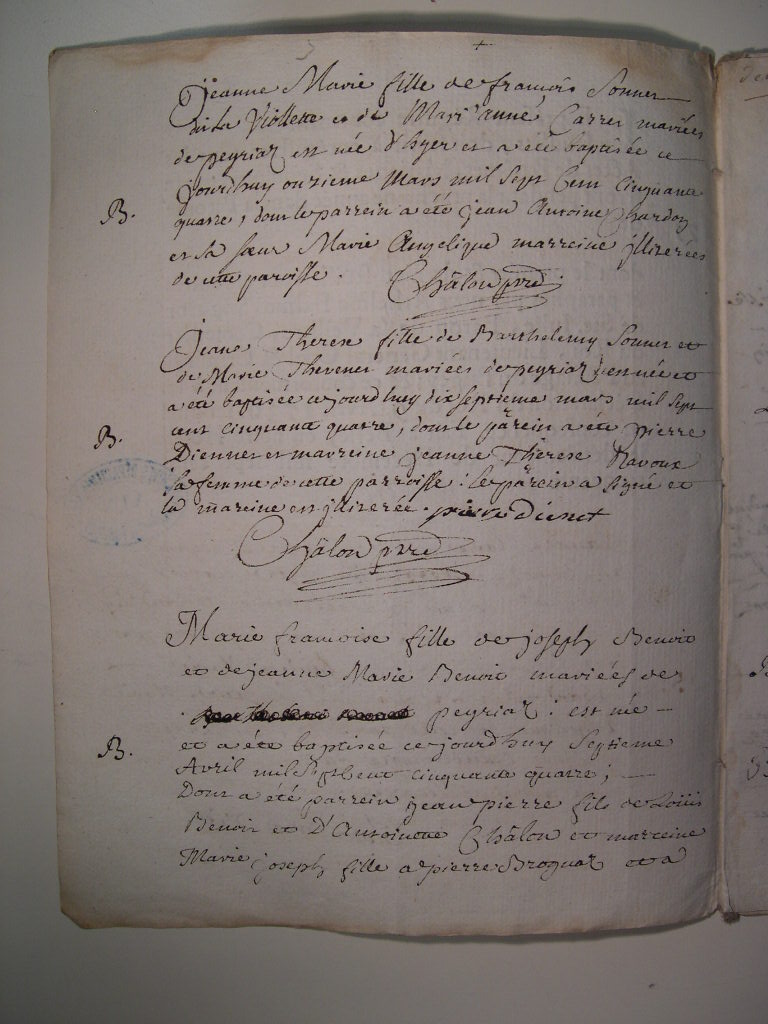 Jeanne Marie fille de françois Sonner
dit la Viollette et de Mari'anne Carrez mariées
de peyriaz est née d'hyer et a été baptisée ce
jourdhuy onzieme Mars mil Sept Cent Cinquante
B. quatre, dont le parrein a été jean Antoine Chardon
et sa sœur Marie Angelique marreine jlliterées
de cette paroisse. Châlon prre
Jeane Therese fille de Barthelemy Sonner et
de Marie Thevener mariées de peyriaz est née et
a été baptisée cejourdhuy dix septieme mars mil sept
B. cent cinquante quatre, dont le parein a été pierre
Dienner et marreine jeanne Therese Ravoux
sa femme de cette parroisse : le parein a signé et
la mareine est jlliterée. pierre dienet
Châlon prre
Marie francoise fille de joseph Benoit
et de jeanne Marie Benoit mariées de
peyriaz : est née
B. et a été baptisée ce jourdhuy Septieme
Avril mil Sept Cent cinquante quatre ;
Dont a été parrein jean pierre fils de Loüis
Benoit et D'Antoinette Châlon et marreine
Marie joseph fille a pierre Broguaz et a